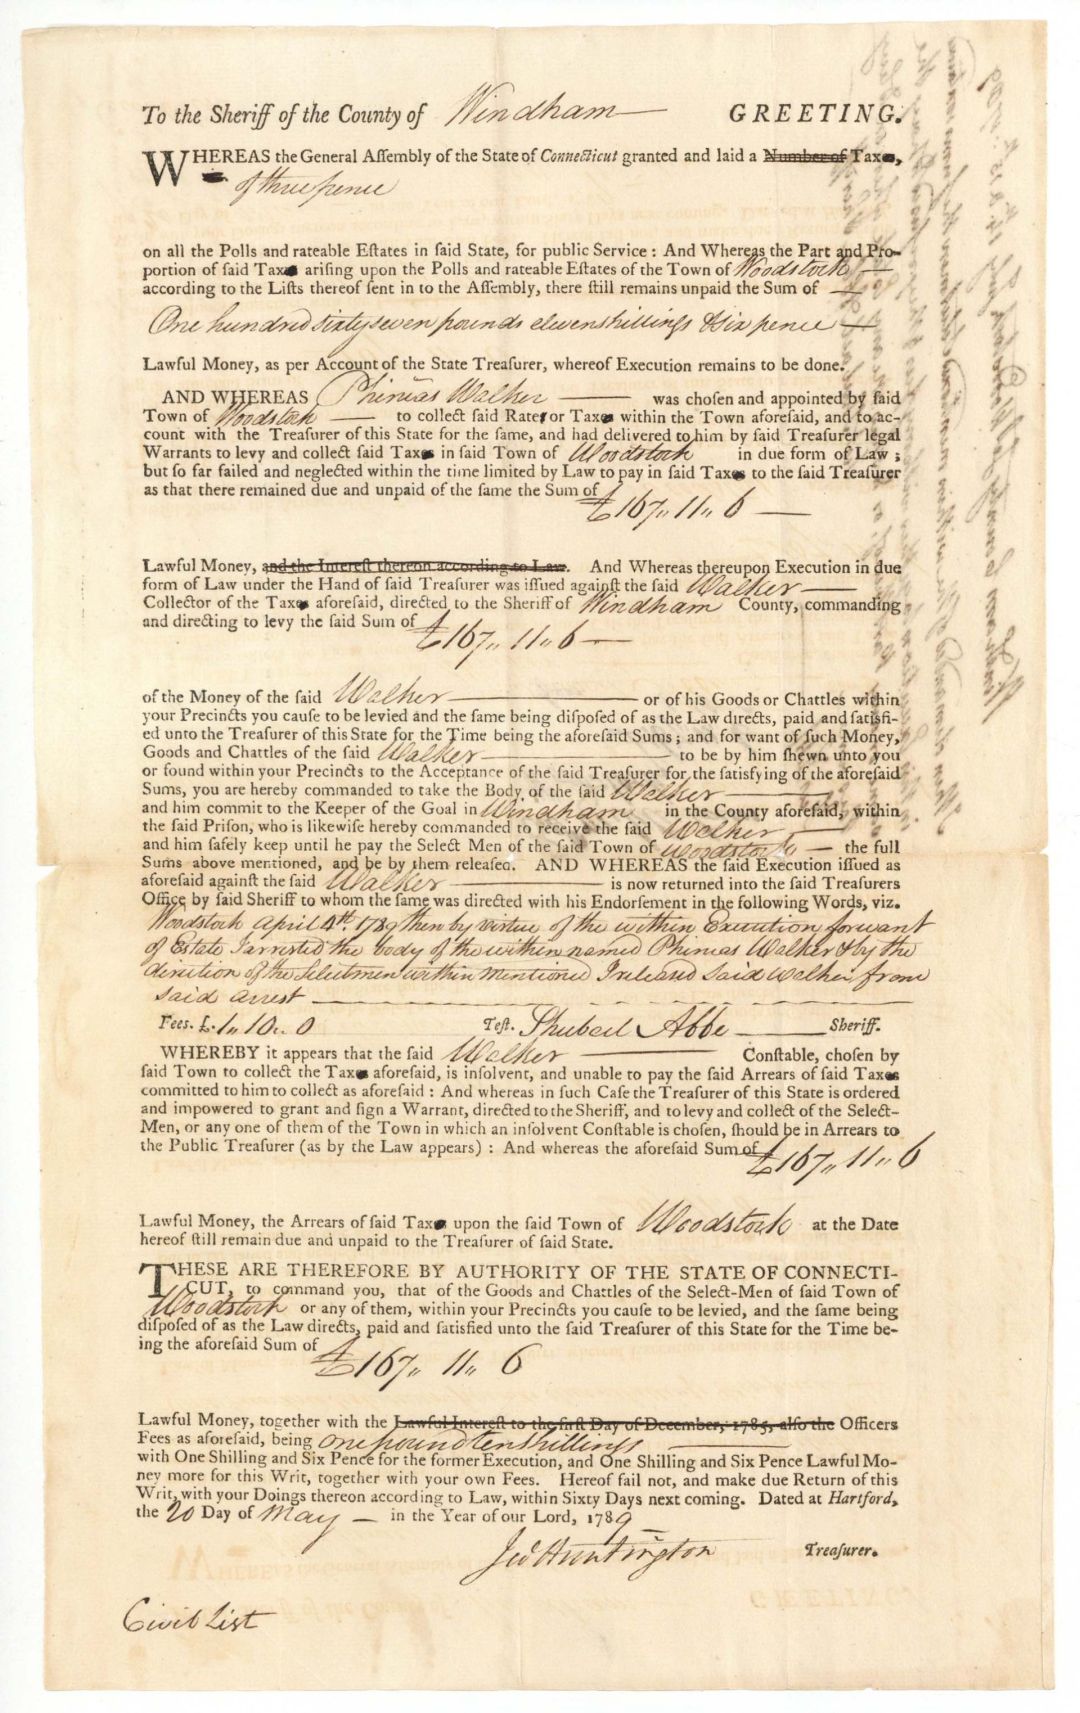 To the Sheriff of the County of Windham GREETING.
WHEREAS the General Assembly of the State of Connecticut granted and laid a Number of Taxes,
of three pence
on all the Polls and rateable Estates in said State, for public Service: And Whereas the Part and Pro-
portion of said Taxes arising upon the Polls and rateable Estates of the Town of Woodstock
according to the Lists thereof sent in to the Assembly, there still remains unpaid the Sum of
One hundred sixty seven pounds eleven shillings & six pence
Lawful Money, as per Account of the State Treasurer, whereof Execution remains to be done.
AND WHEREAS Phineas Walker was chosen and appointed by said
Town of Woodstock to collect said Rates or Taxes within the Town aforesaid, and to ac-
count with the Treasurer of this State for the same, and had delivered to him by said Treasurer legal
Warrants to levy and collect said Taxes in said Town of Woodstock in due form of Law;
but so far failed and neglected within the time limited by Law to pay in said Taxes to the said Treasurer
as that there remained due and unpaid of the same the Sum of
£167,, 11,, 6
Lawful Money, and the Interest thereon according to Law. And Whereas thereupon Execution in due
form of Law under the Hand of said Treasurer was issued against the said Walker
Collector of the Taxes aforesaid, directed to the Sheriff of Windham County, commanding
and directing to levy the said Sum of
£167,, 11,, 6
of the Money of the said Walker or of his Goods or Chattles within
your Precincts you cause to be levied and the same being disposed of as the Law directs, paid and satisfi-
ed unto the Treasurer of this State for the Time being the aforesaid Sums; and for want of such Money,
Goods and Chattles of the said Walker to be by him shewn unto you
or found within your Precincts to the Acceptance of the said Treasurer for the satisfying of the aforesaid
Sums, you are hereby commanded to take the Body of the said Walker
and him commit to the Keeper of the Goal in Windham in the County aforesaid, within
the said Prison, who is likewise hereby commanded to receive the said Walker
and him safely keep until he pay the Select Men of the said Town of Woodstock the full
Sums above mentioned, and be by them released. AND WHEREAS the said Execution issued as
aforesaid against the said Walker is now returned into the said Treasurers
Office by said Sheriff to whom the same was directed with his Endorsement in the following Words, viz.
Woodstock April 4th. 1789 then by virtue of the within Execution for want
of Estate I arrested the body of the within named Phineas Walker & by the
direction of the Selectmen within mentioned I released said Walker from
said arrest
Fees. £.1,, 10,, 0 Test. Shubael Abbe Sheriff.
WHEREBY it appears that the said Walker Constable, chosen by
said Town to collect the Taxes aforesaid, is insolvent, and unable to pay the said Arrears of said Taxes
committed to him to collect as aforesaid: And whereas in such Case the Treasurer of this State is ordered
and impowered to grant and sign a Warrant, directed to the Sheriff, and to levy and collect of the Select-
Men, or any one of them of the Town in which an insolvent Constable is chosen, should be in Arrears to
the Public Treasurer (as by the Law appears): And whereas the aforesaid Sum of
£167,, 11,, 6
Lawful Money, the Arrears of said Taxes upon the said Town of Woodstock at the Date
hereof still remain due and unpaid to the Treasurer of said State.
THESE ARE THEREFORE BY AUTHORITY OF THE STATE OF CONNECTI-
CUT, to command you, that of the Goods and Chattles of the Select-Men of said Town of
Woodstock or any of them, within your Precincts you cause to be levied, and the same being
disposed of as the Law directs, paid and satisfied unto the said Treasurer of this State for the Time be-
ing the aforesaid Sum of
£167,, 11,, 6
Lawful Money, together with the Lawful Interest to the first Day of December, 1785, also the Officers
Fees as aforesaid, being one pound ten shillings
with One Shilling and Six Pence for the former Execution, and One Shilling and Six Pence Lawful Mo-
ney more for this Writ, together with your own Fees. Hereof fail not, and make due Return of this
Writ, with your Doings thereon according to Law, within Sixty Days next coming. Dated at Hartford,
the 20 Day of May in the Year of our Lord, 1789
Jed Huntington Treasurer.
Civil List